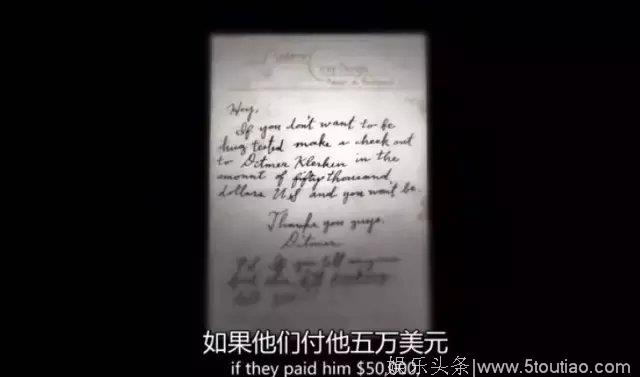 Hey,
If you don't want to be
drug tested make a check out
to Ditmer Klerken in the
amount of fifty thousand
dollars U.S and you won't be.
Thanks you guys.
Ditmer
如果他们付他五万美元
if they paid him $50,000,
娱乐头条/www.5toutiao.com